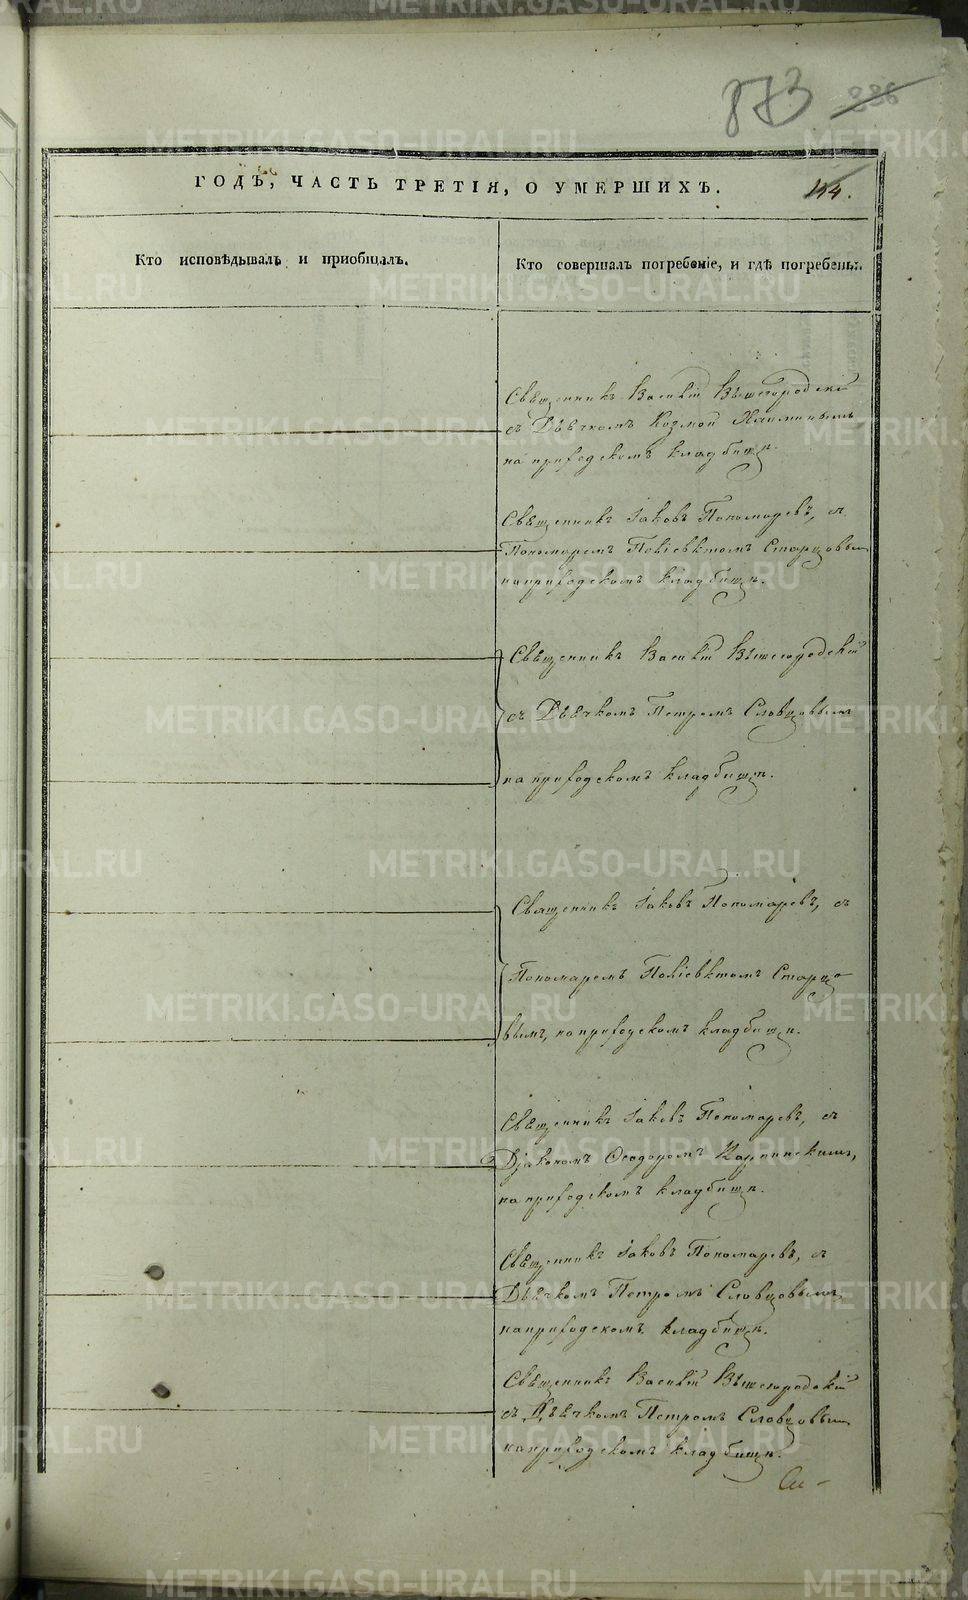 873 236
ГОДЪ, ЧАСТЬ ТРЕТІЯ, О УМЕРШИХЪ.
Кто исповѣдывалъ и пріобщалъ.
Кто совершалъ погребеніе, и гдѣ погребены.
Священникъ Василій Вышегородскій
съ Дьячкомъ Козмой
на приходскомъ кладбищѣ.
Священникъ Іаковъ Пономаревъ, съ
Пономаремъ Поліевктомъ Старцовым
на приходскомъ кладбищѣ.
Священникъ Василій Вышегородскій
съ Дьячкомъ Петромъ Словцовымъ
на приходскомъ кладбищѣ.
Священникъ Іаковъ Пономаревъ, съ
Пономаремъ Поліевктомъ Старцо
вымъ, на приходскомъ кладбищѣ.
Священникъ Іаковъ Пономаревъ, съ
Діакономъ Ѳеодоромъ Карпинскимъ,
на приходскомъ кладбищѣ.
Священникъ Іаковъ Пономаревъ, съ
Дьячкомъ Петромъ Словцовымъ,
на приходскомъ кладбищѣ.
Священникъ Василій Вышегородскій
съ Дьячкомъ Петромъ Словцовым
на приходскомъ кладбищѣ.
METRIKI.GASO-URAL.RU